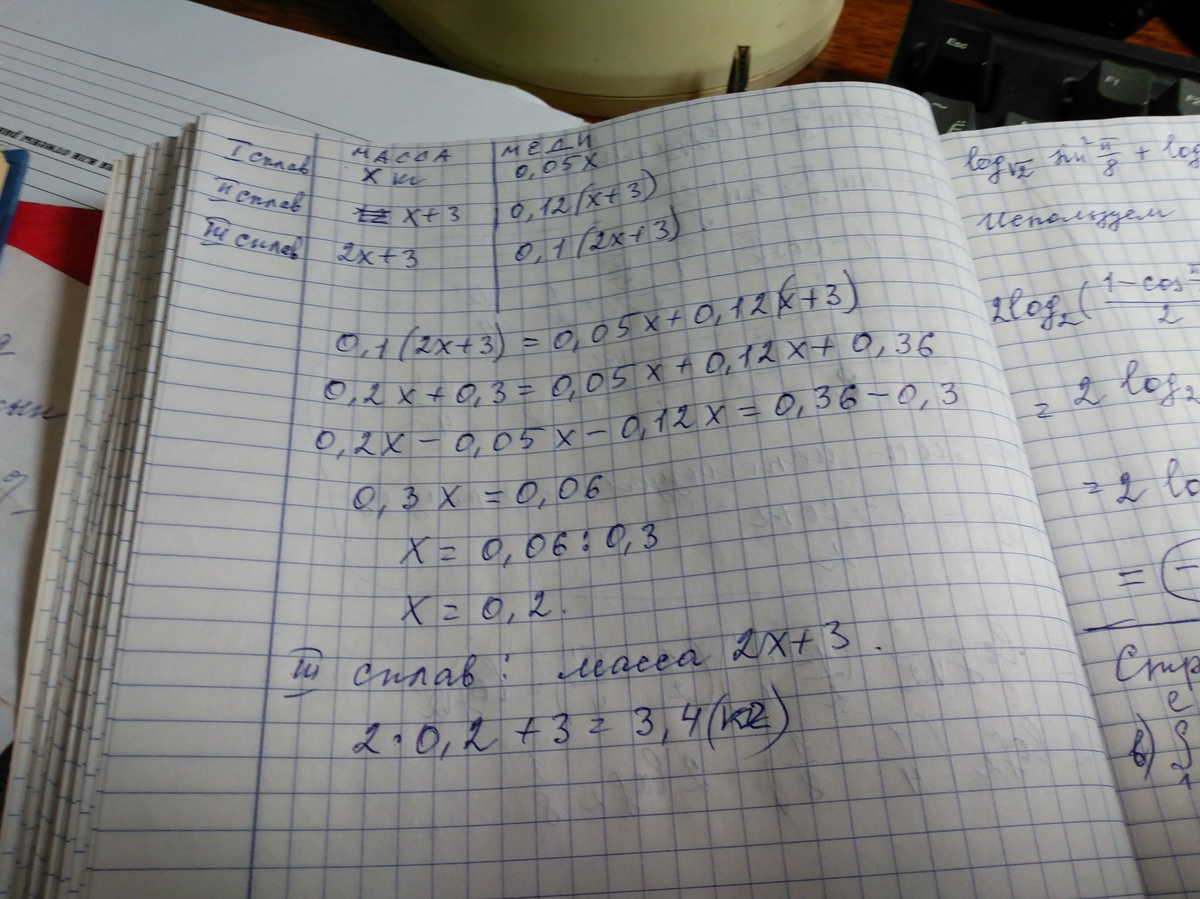 МАССА МЕДИ
I сплав x кг 0,05x
II сплав x+3 0,12(x+3)
III сплав 2x+3 0,1(2x+3).
0,1(2x+3) = 0,05x+0,12(x+3)
0,2x+0,3=0,05x+0,12x+0,36
0,2x-0,05x-0,12x=0,36-0,3
0,3x=0,06
x=0,06:0,3
x=0,2.
III сплав: масса 2x+3.
2·0,2+3=3,4(кг)
log√2 sin² π/8 + log
Используем
2log₂(1-cos π/2
= 2 log₂
= 2 lo
= (-
Стр
e
в) ∫
1
Esc
~
Ё
F1
F2